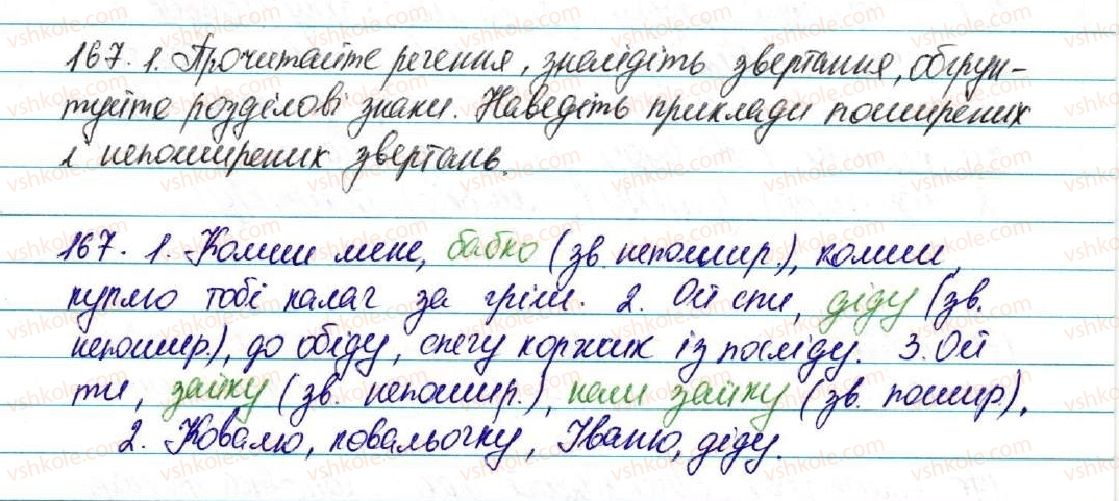 167. 1. Прочитайте речення, знайдіть звертання, обґрун-
туйте розділові знаки. Наведіть приклади поширених
і непоширених звертань.
167. 1. Колиши мене, бабко (зв. непошир.), колиши,
куплю тобі калач за гріш. 2. Ой спи, діду (зв.
непошир.), до обіду, спечу коржик із посліду. 3. Ой
ти, зайку (зв. непошир.), наш зайку (зв. пошир.),
2. Ковалю, ковальочку, Іваню, діду.